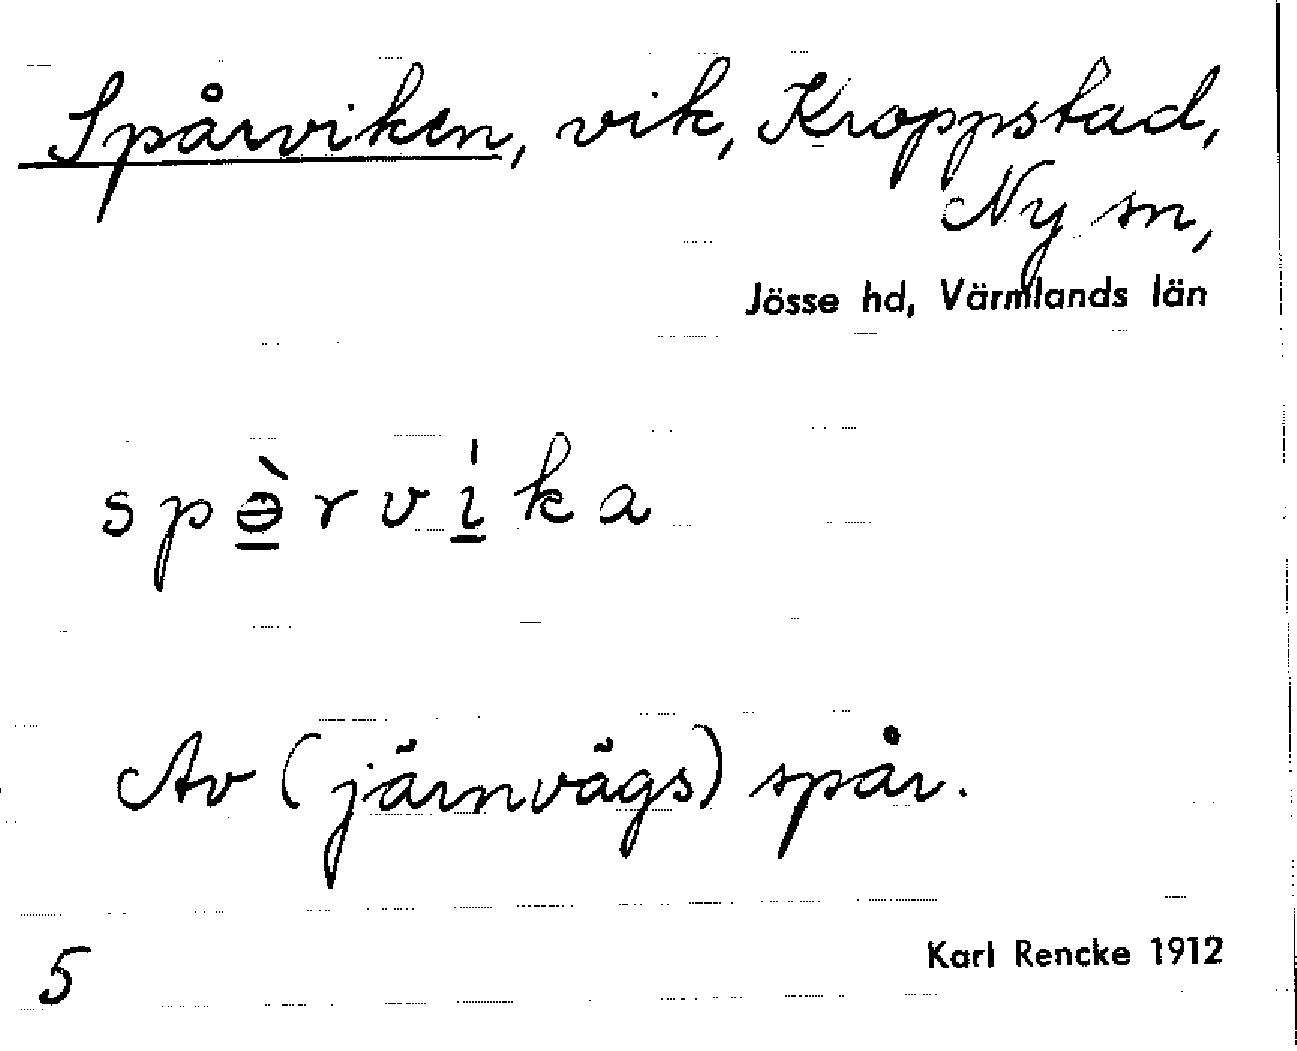 Spårviken, vik, Kroppstad,
Ny sn,
Jösse hd, Värmlands län
spə̱̀rvı̱̍ka
Av (järnvägs) spår.
5 Karl Rencke 1912